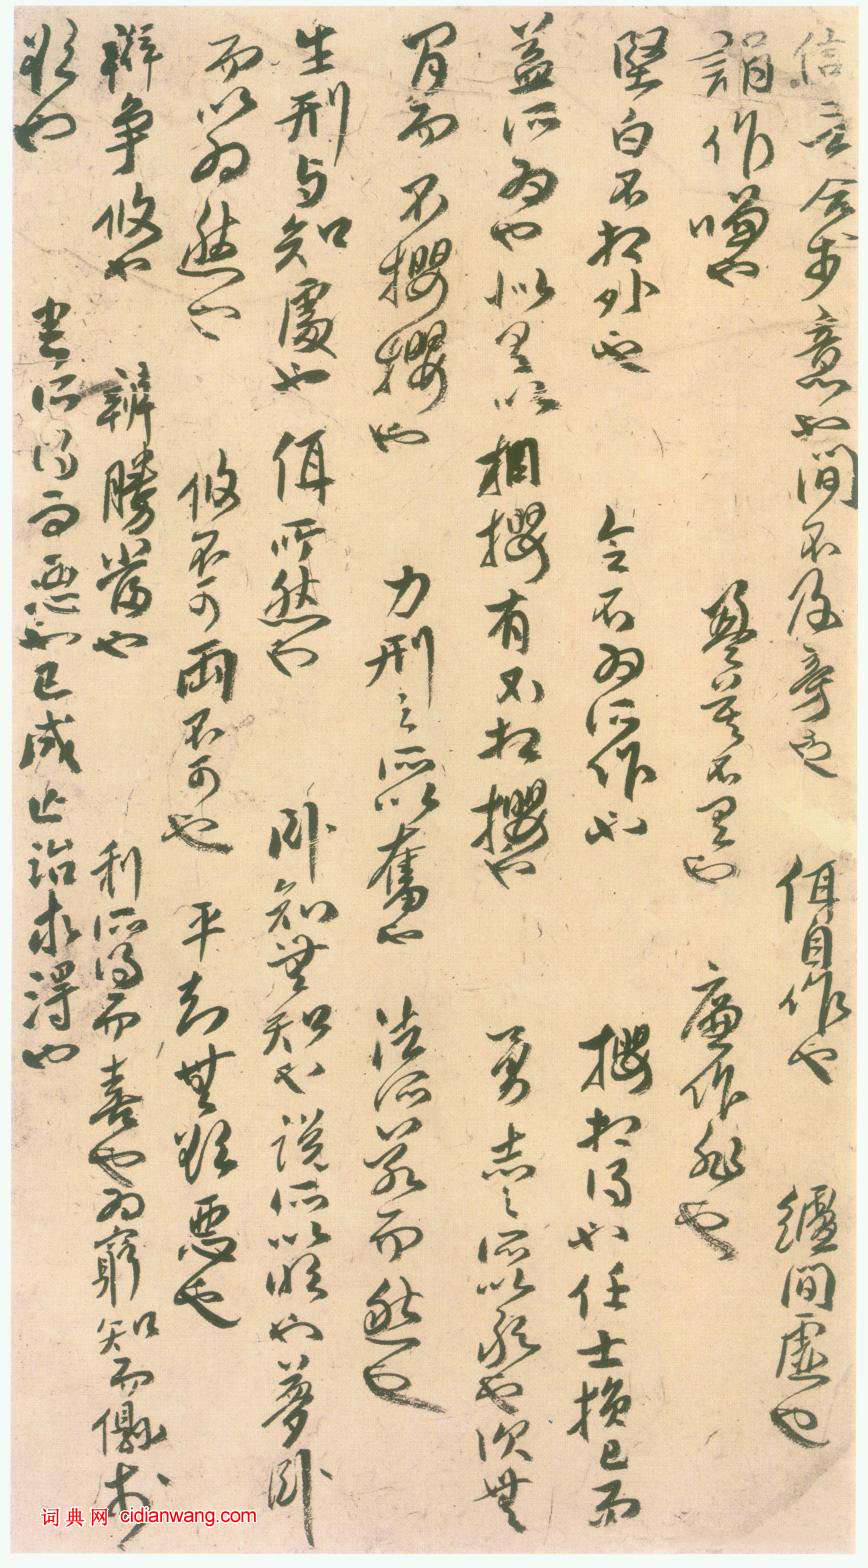 信言合於意也 間不及旁也 佴自作也 纑間虛也
䛼作嗛也 盈莫不有也 廉作非也
堅白不相外也 令不為所作也 攖相得也任士損己而
益所為也似有以相攖有不相攖也 勇志之所以敢也次無
間而不攖攖也 力刑之所以奮也 法所若而然也
生刑与知處也 佴所然也 卧知無知也說所以明也夢卧
而以為然也 攸不可兩不可也 平知無欲惡也
辯爭攸也 辯勝當也 利所得而喜也為窮知而於
欲也 害所得而惡也已成亡治求得也
词典网 cidianwang.com